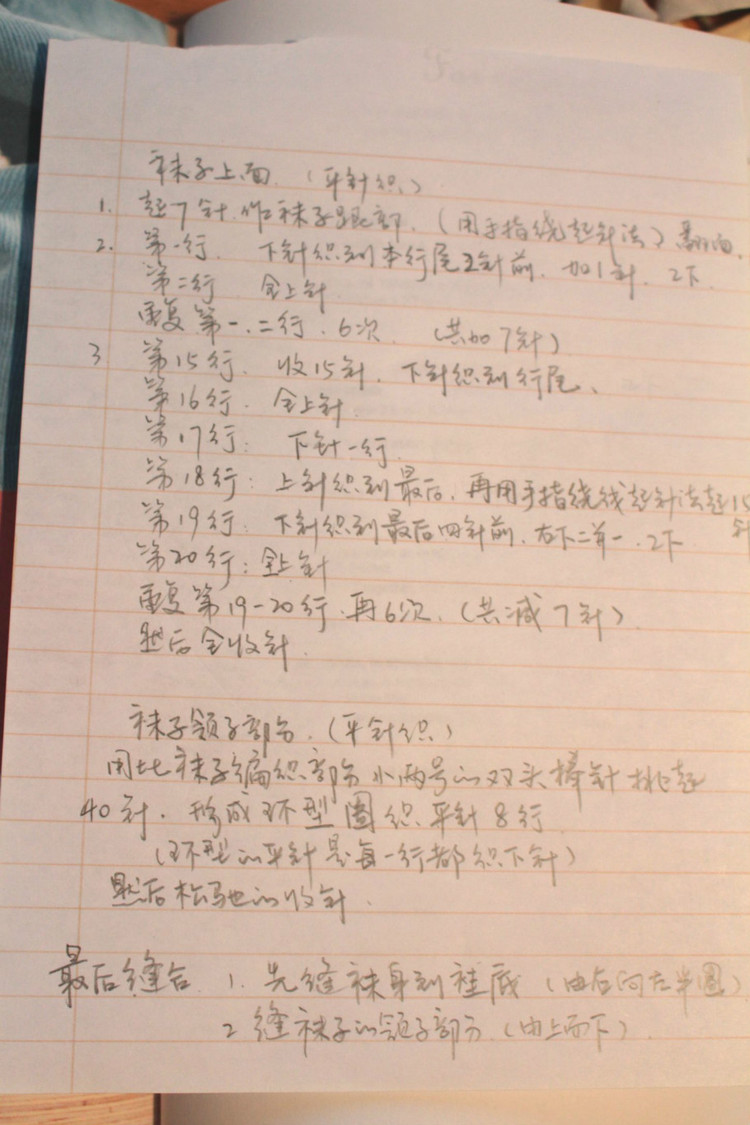 袜子上面.（平针织.）
1. 起7针.作袜子跟部.（用手指绕起针法）翻面.
2. 第一行. 下针织到本行尾2针前.加1针. 2下.
第二行 全上针.
重复第一.二行.6次. （共加7针）
3 第15行. 收15针. 下针织到行尾.
第16行. 全上针.
第17行: 下针一行.
第18行: 上针织到最后.再用手指绕线起针法起15针
第19行: 下针织到最后四针前.右下二并一.2下.
第20行: 全上针
重复第19-20行.再6次.（共减7针）.
然后全收针.
袜子领子部分.（平针织）
用比袜子编织部分小两号的双头棒针挑起
40针. 形成环型圈织平针8行
（环型的平针是每一行都织下针）
然后松弛的收针.
最后缝合. 1. 先缝袜身到袜底（由后向左半圈）
2 缝袜子的领子部分.（由上而下）.